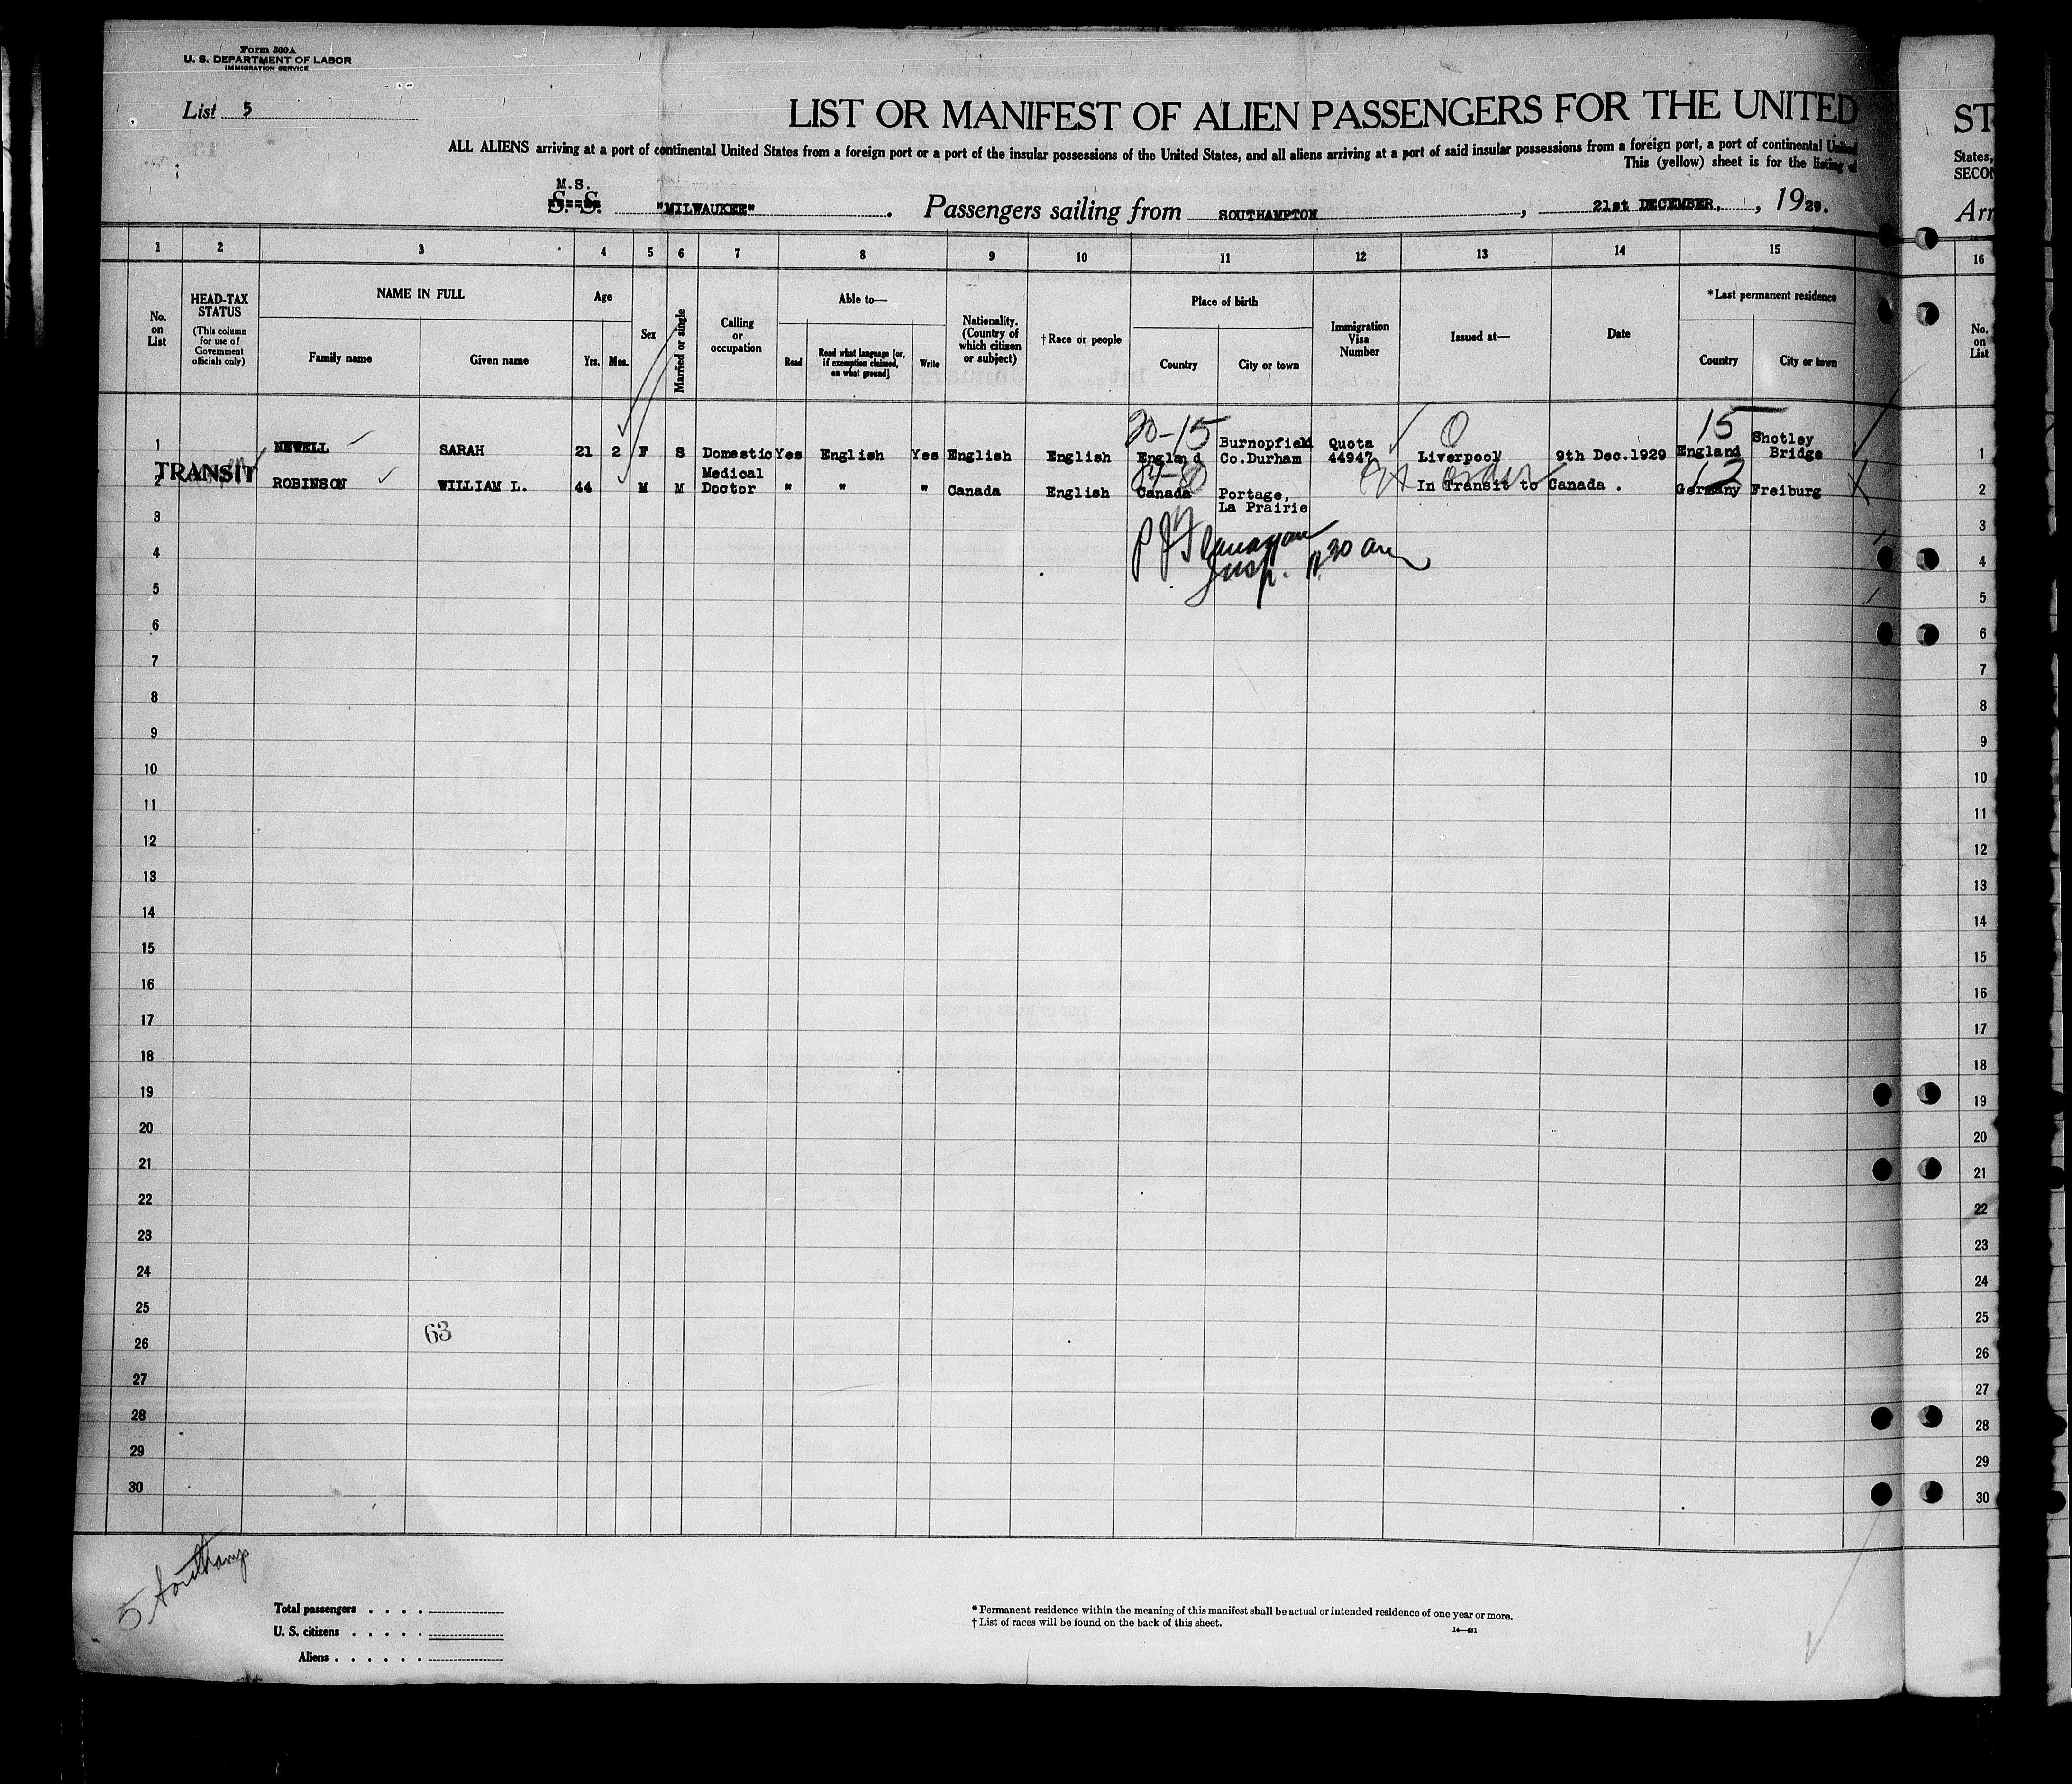 Form 500A
U. S. DEPARTMENT OF LABOR
IMMIGRATION SERVICE
List 5
LIST OR MANIFEST OF ALIEN PASSENGERS FOR THE UNITED
ST
ALL ALIENS arriving at a port of continental United States from a foreign port or a port of the insular possessions of the United States, and all aliens arriving at a port of said insular possessions from a foreign port, a port of continental United
States,
This (yellow) sheet is for the listing of
SECON
M.S.
S. S. "MILWAUKEE" . Passengers sailing from SOUTHAMPTON , 21st DECEMBER, , 1929.
Arr
1 2 3 4 5 6 7 8 9 10 11 12 13 14 15 16
No. on List
HEAD-TAX STATUS
(This column for use of Government officials only)
NAME IN FULL
Family name
Given name
Age
Yrs. Mos.
Sex
Married or single
Calling or occupation
Able to—
Read
Read what language [or, if exemption claimed, on what ground]
Write
Nationality. (Country of which citizen or subject)
†Race or people
Place of birth
Country
City or town
Immigration Visa Number
Issued at—
Date
*Last permanent residence
Country
City or town
No. on List
20-15 0 15
1 NEWELL SARAH 21 2 F S Domestic Yes English Yes English English England Burnopfield Co.Durham Quota 44947 Liverpool 9th Dec.1929 England Shotley Bridge 1
TRANSIT
12
2 ROBINSON WILLIAM L. 44 M M Medical Doctor " " " Canada English Canada Portage, La Prairie In Transit to Canada . Germany Freiburg 2
3 3
P J Flanagan
4 4
Insp.
5 5
6 6
7 7
8 8
9 9
10 10
11 11
12 12
13 13
14 14
15 15
16 16
17 17
18 18
19 19
20 20
21 21
22 22
23 23
24 24
25 25
63
26 26
27 27
28 28
29 29
30 30
5 Southamp
Total passengers . . . .
U. S. citizens . . . . .
Aliens . . . . . .
* Permanent residence within the meaning of this manifest shall be actual or intended residence of one year or more.
† List of races will be found on the back of this sheet.
14—431